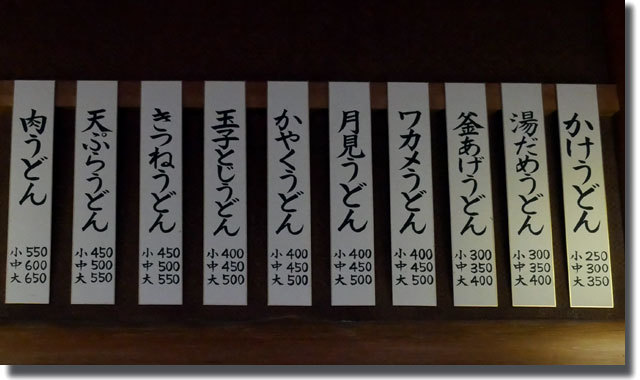 かけうどん
小 250
中 300
大 350
湯だめうどん
小 300
中 350
大 400
釜あげうどん
小 300
中 350
大 400
ワカメうどん
小 400
中 450
大 500
月見うどん
小 400
中 450
大 500
かやくうどん
小 400
中 450
大 500
玉子とじうどん
小 400
中 450
大 500
きつねうどん
小 450
中 500
大 550
天ぷらうどん
小 450
中 500
大 550
肉うどん
小 550
中 600
大 650